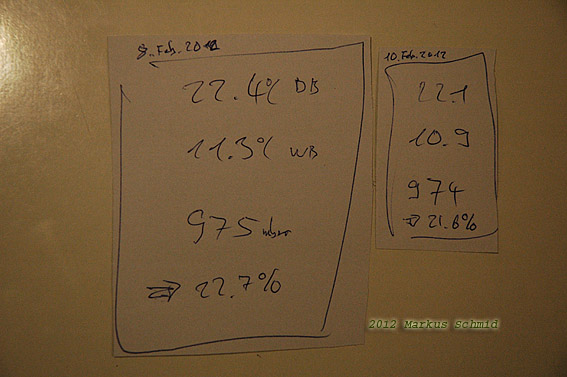 8. Feb. 2012
22.4°C DB
11.3°C WB
975 mbar
⇒ 22.7%
10. Feb. 2012
22.1
10.9
974
⇒ 21.6%
2012 Markus Schmid